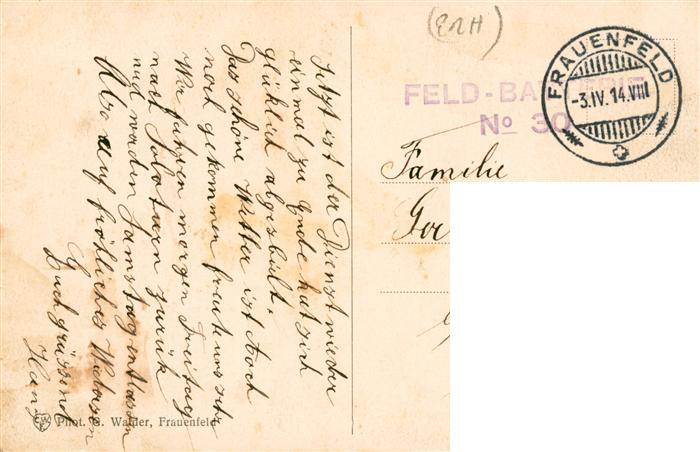 (ERH)
FRAUENFELD
-3.IV.14.VIII
FELD-BA
No 30
Familie
Jetzt ist der Dienst wieder
einmal zu Ende hat sich
glücklich abgespielt.
Das schöne Wetter ist doch
noch gekommen freute uns sehr
Wir fahren morgen Freitag
nach Soloturn zurük
und werden Samstag entlassen
Also auf fröhliches Wiedersehn
Euch grüssend
Hans
Phot. G. Walder, Frauenfeld